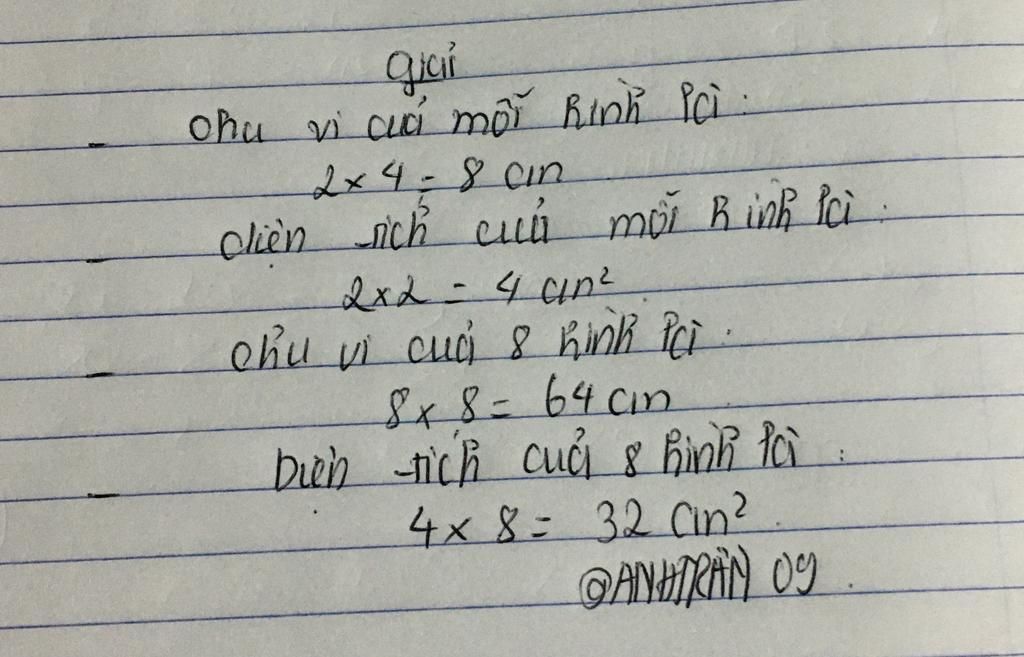 giải
- Chu vi của mỗi hình là :
2 x 4 = 8 cm
- diện tích của mỗi hình là :
2 x 2 = 4 cm²
- Chu vi của 8 hình là :
8 x 8 = 64 cm
- Diện tích của 8 hình là :
4 x 8 = 32 cm²
@ANHTRẦN 09.